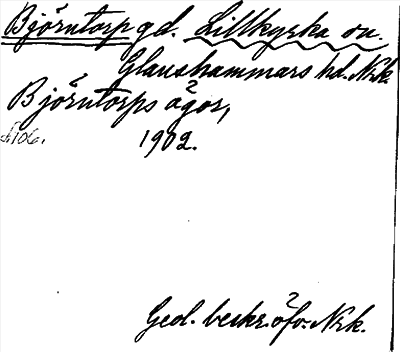 Björntorp gd. Lillkyrka sn.
Glanshammars hd. Nrk.
Björntorps ägor,
1902.
Geol. beskr. öfv. Nrk.